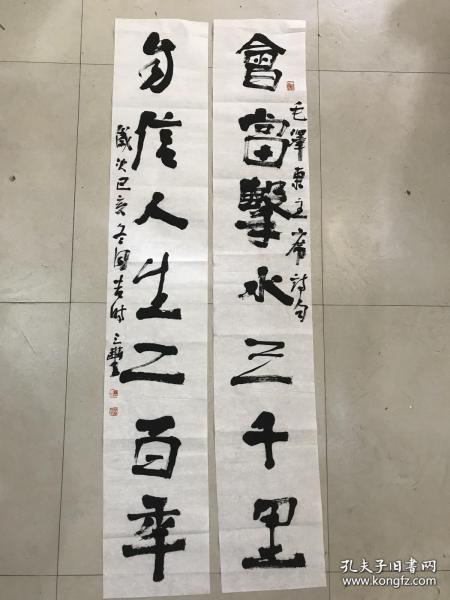 會當擊水三千里
毛澤東主席詩句
自信人生二百年
歲次己亥冬吉時
孔夫子旧书网
www.kongfz.com